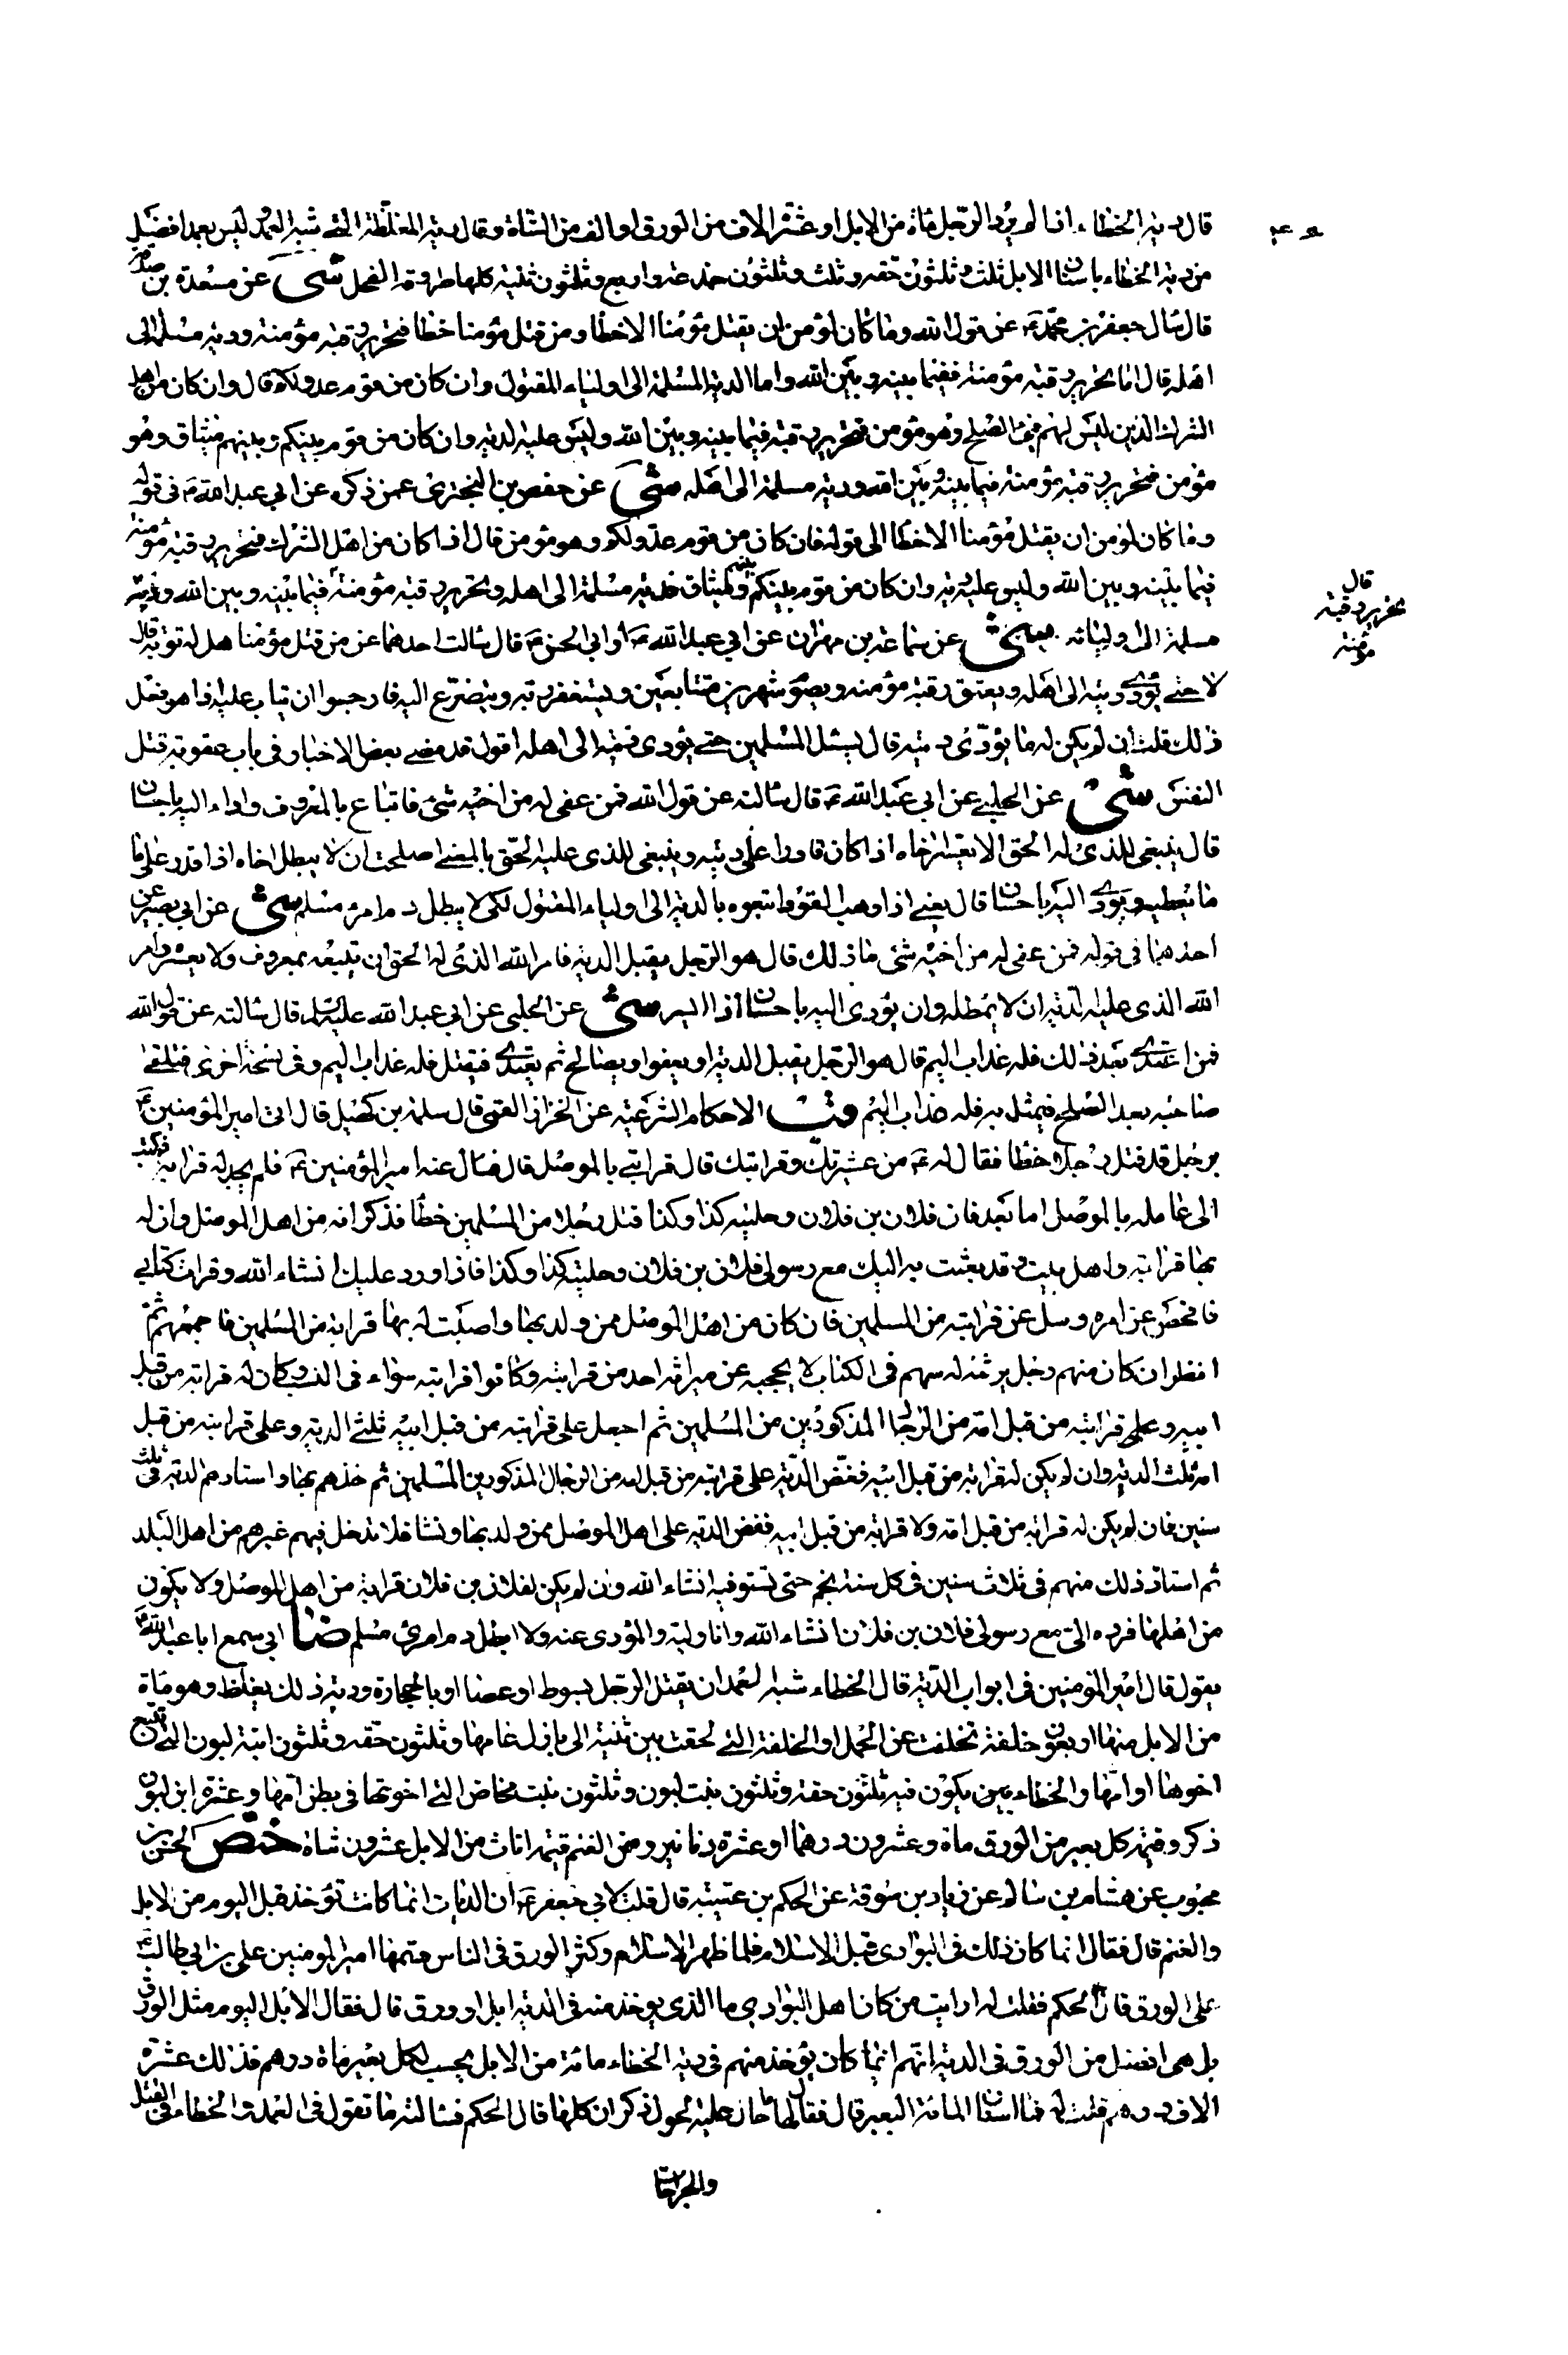 قال دية الخطاء اذا لم يرد الرجل مأة من الابل او عشرة الاف من الورق او الف من الشاة وقال دية المغلظة التي شبه العمد وليس بعمد افضل
من دية الخطاء باسنان الابل ثلث وثلثون حقه وثلث وثلثون جذعه واربع وثلثون ثنيه كلها طروقة الفحل شى عن مسعدة بن صدقه
قال سال جعفر بن محمد ع عن قول الله وما كان لمؤمن ان يقتل مؤمنا الا خطا ومن قتل مؤمنا خطا فتحرير رقبه مؤمنه ودية مسلمة الى
اهله قال اما تحرير رقبه مؤمنه ففيما بينه وبين الله واما الدية المسلمة الى اولياء المقتول وان كان من قوم عدو لكم قال وان كان من اهل
الشرك الذين ليس لهم في الصلح وهو مؤمن فتحرير رقبه فيما بينه وبين الله وليس عليه الدية وان كان من قوم بينكم وبينهم ميثاق وهو
مؤمن فتحرير رقبه مؤمنه فيما بينه وبين الله ودية مسلمة الى اهله شى عن حفص بن البختري عمن ذكره عن ابي عبد الله ع في قوله
وما كان لمؤمن ان يقتل مؤمنا الا خطا الى قوله فان كان من قوم عدو لكم وهو مؤمن قال اذا كان من اهل الشرك فتحرير رقبه مؤمنه
فيما بينه وبين الله وليس عليه دية وان كان من قوم بينكم وبينهم ميثاق فدية مسلمة الى اهله وتحرير رقبه مؤمنه فيما بينه وبين الله ودية
مسلمة الى اوليائه شى عن سماعة بن مهران عن ابي عبد الله ع او ابي الحسن ع قال سالت احدهما عن من قتل مؤمنا هل له توبة قال
لا حتى يؤدي ديته الى اهله ويعتق رقبه مؤمنه ويصوم شهرين متتابعين ويستغفر ربه ويتضرع اليه فارجو ان يتاب عليه اذا هو فعل
ذلك قلت ان لم يكن له ما يؤدي ديته قال يسئل المسلمين حتى يؤدي ديته الى اهله اقول قد مضى بعض الاخبار في باب عقوبة قتل
النفس شى عن الحلبي عن ابي عبد الله ع قال سالته عن قول الله فمن عفى له من اخيه شئ فاتباع بالمعروف واداء اليه باحسان
قال ينبغي للذي له الحق الا يعسر اخاه اذا كان قادرا على ديته وينبغي للذي عليه الحق ان لا يبطل اخاه اذا قدر على ما
ما يعطيه ويؤدي اليه باحسان قال يعني اذا وهب القود اتبعوه بالدية الى اولياء المقتول لكى لا يبطل دم امرئ مسلم شى عن ابي بصير عن
احدهما في قوله فمن عفى له من اخيه شئ ما ذلك قال هو الرجل يقبل الدية فامر الله الذي له الحق ان يتبعه بمعروف ولا يعسره وامر
الله الذي عليه الدية ان لا يمطله وان يؤدي اليه باحسان اذا ايسر شى عن الحلبي عن ابي عبد الله عليه السلم قال سالته عن قول الله
فمن اعتدى بعد ذلك فله عذاب اليم قال هو الرجل يقبل الدية او يعفوا ويصالح ثم يعتدي فيقتل فله عذاب اليم وفي نسخة اخرى فيلقى
صاحبه بعد الصلح فيمثل به فله عذاب اليم الاحكام الشرعية عن الخزاز القمي قال سلمة بن كهيل قال اتى امير المؤمنين ع
برجل قد قتل رجلا خطا فقال له ع من عشيرتك وقرابتك قال قرابتي بالموصل قال فسال عنه امير المؤمنين ع فلم يجد له قرابة فكتب
الى عامله بالموصل اما بعد فان فلان بن فلان وحليته كذا وكذا قتل رجلا من المسلمين خطا فذكر انه من اهل الموصل وان له
بها قرابة واهل بيت وقد بعثت به اليك مع رسولي فلان بن فلان وحليته كذا وكذا فاذا ورد عليك انشاء الله وقرات كتابي
فافحص عن امره وسل عن قرابته من المسلمين فان كان من اهل الموصل ممن ولد بها واصبت له بها قرابة من المسلمين فاجمعهم ثم
انظر ان كان منهم رجل يرثه له سهم في الكتاب لا يحجبه عن ميراثه احد من قرابته وكانوا قرابته سواء في النسب وكان له قرابة من قبل
ابيه وعلى قرابته من قبل امه من الرجال المذكورين من المسلمين ثم اجعل على قرابته من قبل ابيه ثلثي الدية وعلى قرابته من قبل
امه ثلث الدية وان لم يكن له قرابة من قبل ابيه ففض الدية على قرابته من قبل امه من الرجال المذكورين المسلمين ثم خذهم بها واستادهم الدية في ثلث
سنين فان لم يكن له قرابة من قبل امه ولا قرابة من قبل ابيه ففض الدية على اهل الموصل ممن ولد بها ونشا فلا تدخل فيهم غيرهم من اهل البلد
ثم استاد ذلك منهم في ثلاث سنين في كل سنة نجم حتى تستوفيه انشاء الله وان لم يكن لفلان بن فلان قرابة من اهل الموصل ولا يكون
من اهلها فرده الي مع رسولي فلان بن فلان انشاء الله وانا وليه والمؤدى عنه ولا ابطل دم امرئ مسلم ضا ابي سمع ابا عبد الله ع
يقول قال امير المؤمنين في ابواب الدية قال الخطاء شبه العمد ان يقتل الرجل بسوط او عصا او بالحجارة ودية ذلك يغلظ وهو مأة
من الابل منها اربعون خلفة تخلفت عن الحمل او الخلفة التي لحقت بين ثنية الى بازل عامها وثلثون حقه وثلثون ابنة لبون التي تتبع
اخوها او امها والخطاء بين يكون فيه ثلثون حقة وثلثون بنت لبون وثلثون بنت مخاض التي اخوتها في بطن امها وعشرة ابن لبون
ذكر وقيمة كل بعير من الورق مأة وعشرون درهما او عشرة دنانير ومن الغنم قيمة اناث من الابل عشرون شاة ختص الحسن بن
محبوب عن هشام بن سالم عن زياد بن سوقة عن الحكم بن عتيبة قال قلت لابي جعفر ع ان الديات انما كانت تؤخذ قبل اليوم من الابل
والغنم قال فقال انما كان ذلك في البوادي قبل الاسلام فلما ظهر الاسلام وكثر الورق في الناس قسمها امير المومنين علي بن ابي طالب ع
على الورق قال الحكم فقلت له ارايت من كان اهل البوادي ما الذي يوخذ منه في الدية ابل او ورق قال فقال الابل اليوم مثل الورق
بل هى افضل من الورق في الدية انهم انما كان يؤخذ منهم في دية الخطاء مائة من الابل يحسب لكل بعير مأة درهم فذلك عشرة
الاف درهم قلت له فما اسنان المائة البعير قال فقال لها ما حال عليه الحول ذكران كلها قال الحكم فسالته ما تقول في العمد والخطاء في القتل
والجراحات
قال
تحرير رقبه
مؤمنه